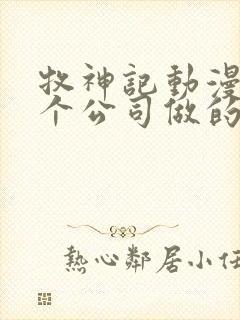 牧神記動漫
个公司做的
熱心鄰居小任